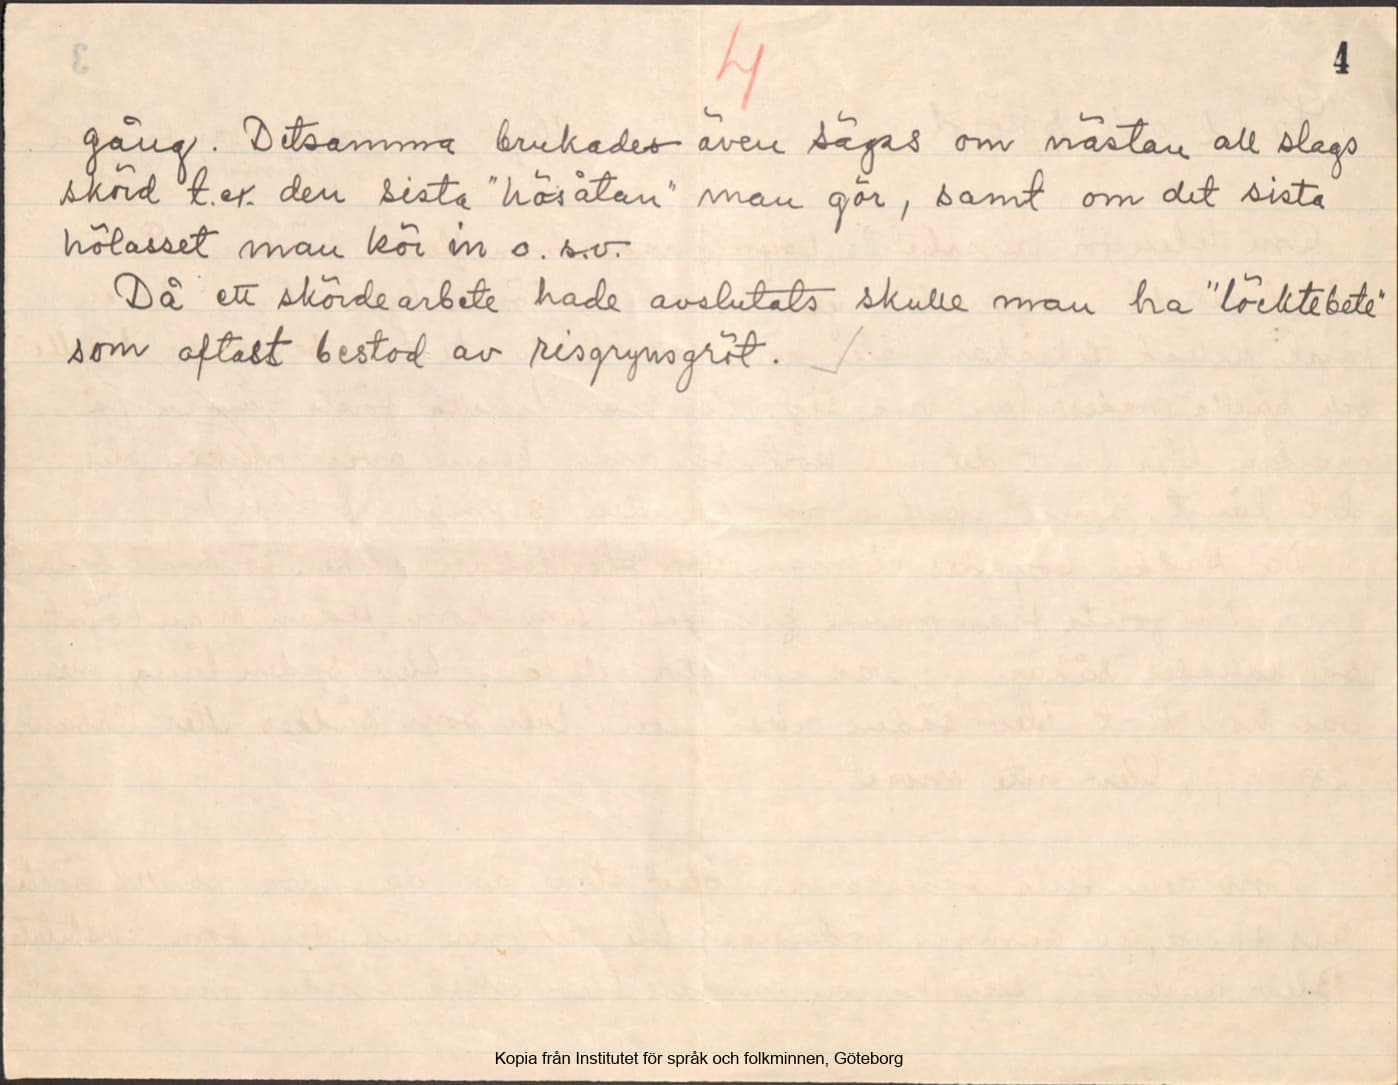 4
4
gång. Detsamma brukades även sägas om nästan all slags
skörd t.ex. den sista "hösåtan" man gör, samt om det sista
hölasset man kör in o.s.v.
Då ett skördearbete hade avslutats skulle man ha "löcktebete"
som oftast bestod av risgrynsgröt.
Kopia från Institutet för språk och folkminnen, Göteborg